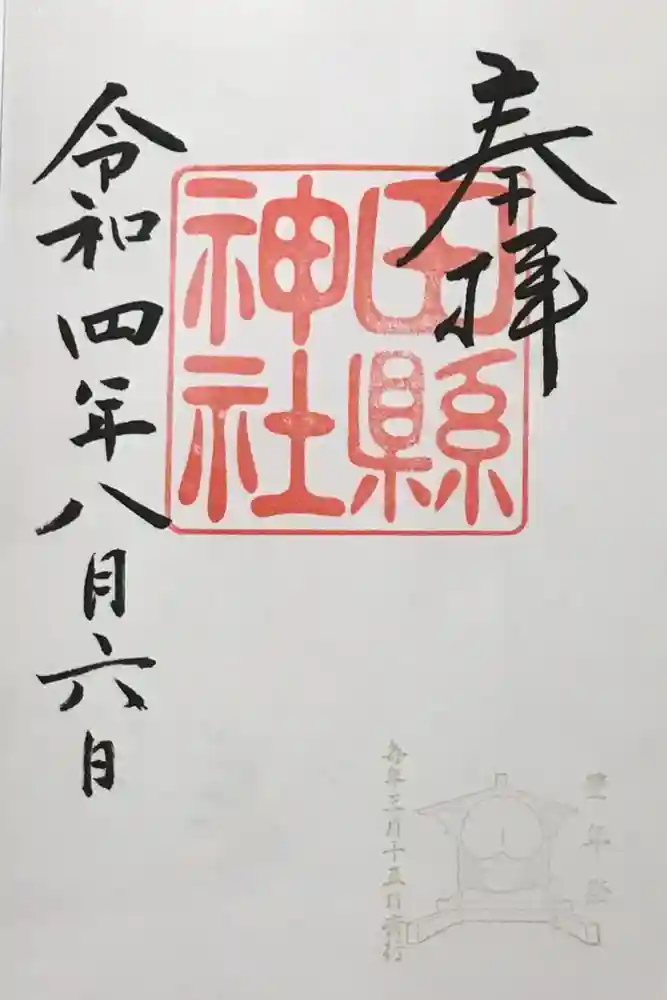 奉拝
田縣
神社
令和四年八月六日
豊年祭
毎年三月十五日斎行